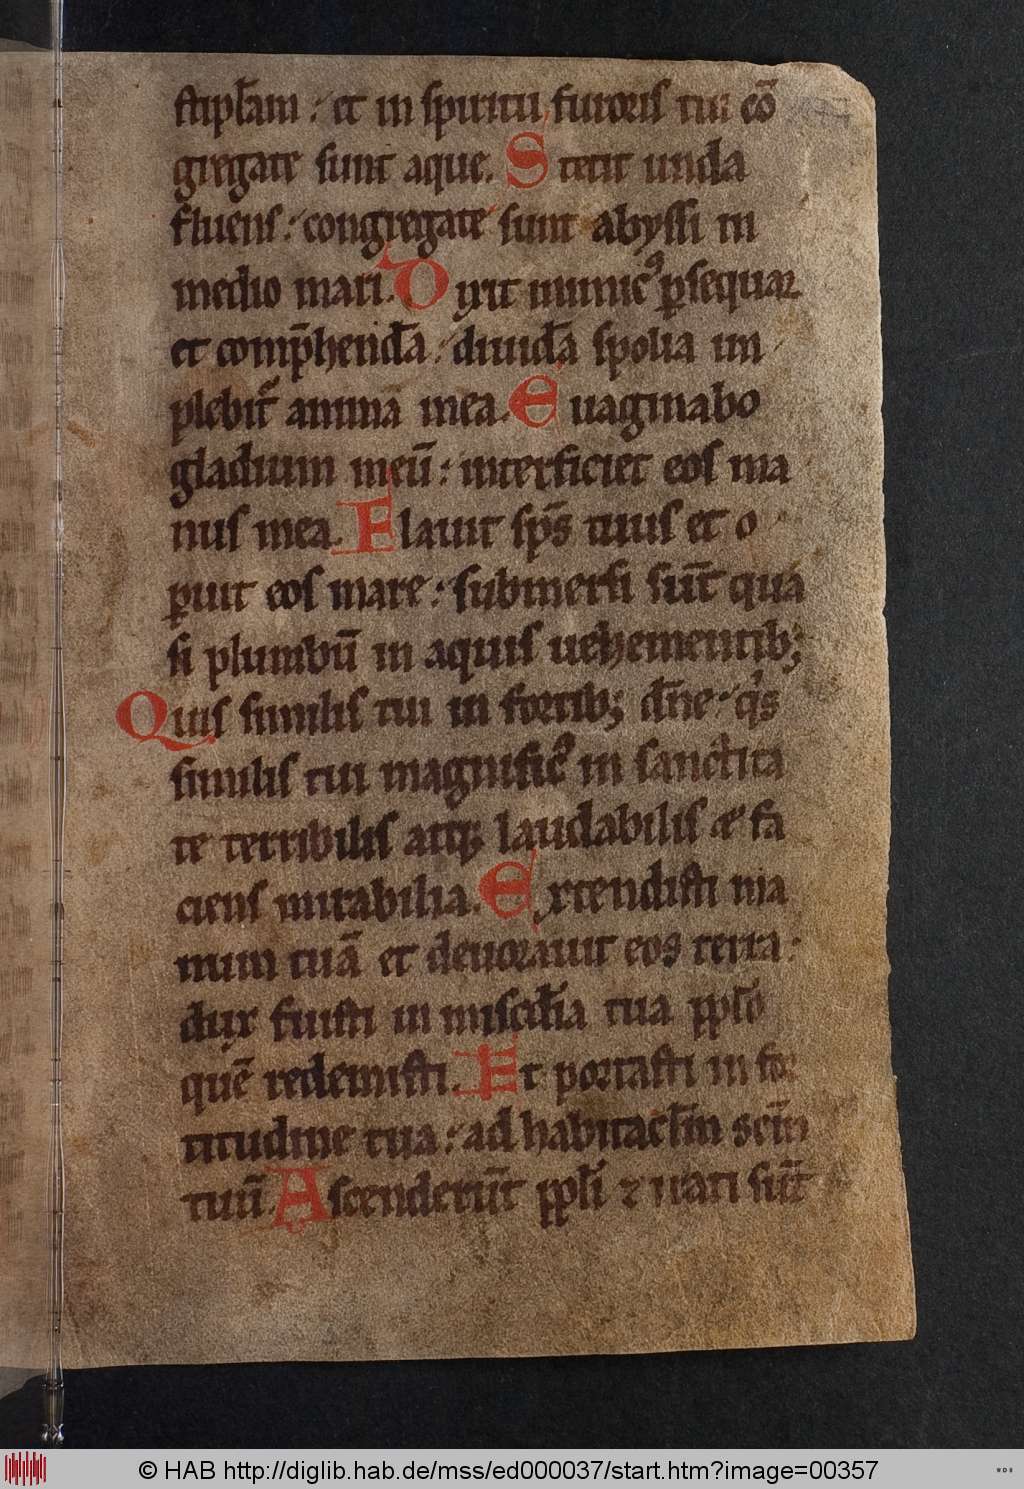 stipl̄am : et in spiritu furoris tui cō
gregate sunt aque. Stetit unda
fluens : congregate sunt abyssi in
medio mari. Dixit inimicꝰ ꝑsequar
et comp̄hendā : diuidā spolia im
plebit᷑ anima mea. Euaginabo
gladium meū : interficiet eos ma
nus mea. Flauit sp̄s tuus et o
ꝑuit eos mare : submersi sūt qua
si plumbū in aquis uehementib;
Quis similis tui in fortib; dn̄e : qͥs
similis tui magnificꝰ in sanctita
te terribilis atqꝫ laudabilis & fa
ciens mirabilia. Extendisti ma
num tuā et deuorauit eos terra :
dux fuisti in misc̄dia tua ppl̄o
quē redemisti. Et portasti in for
titudine tua : ad habitacl̄m sc̄m
tuū. Ascenderūt ppl̄i ⁊ irati sūt
© HAB http://diglib.hab.de/mss/ed000037/start.htm?image=00357